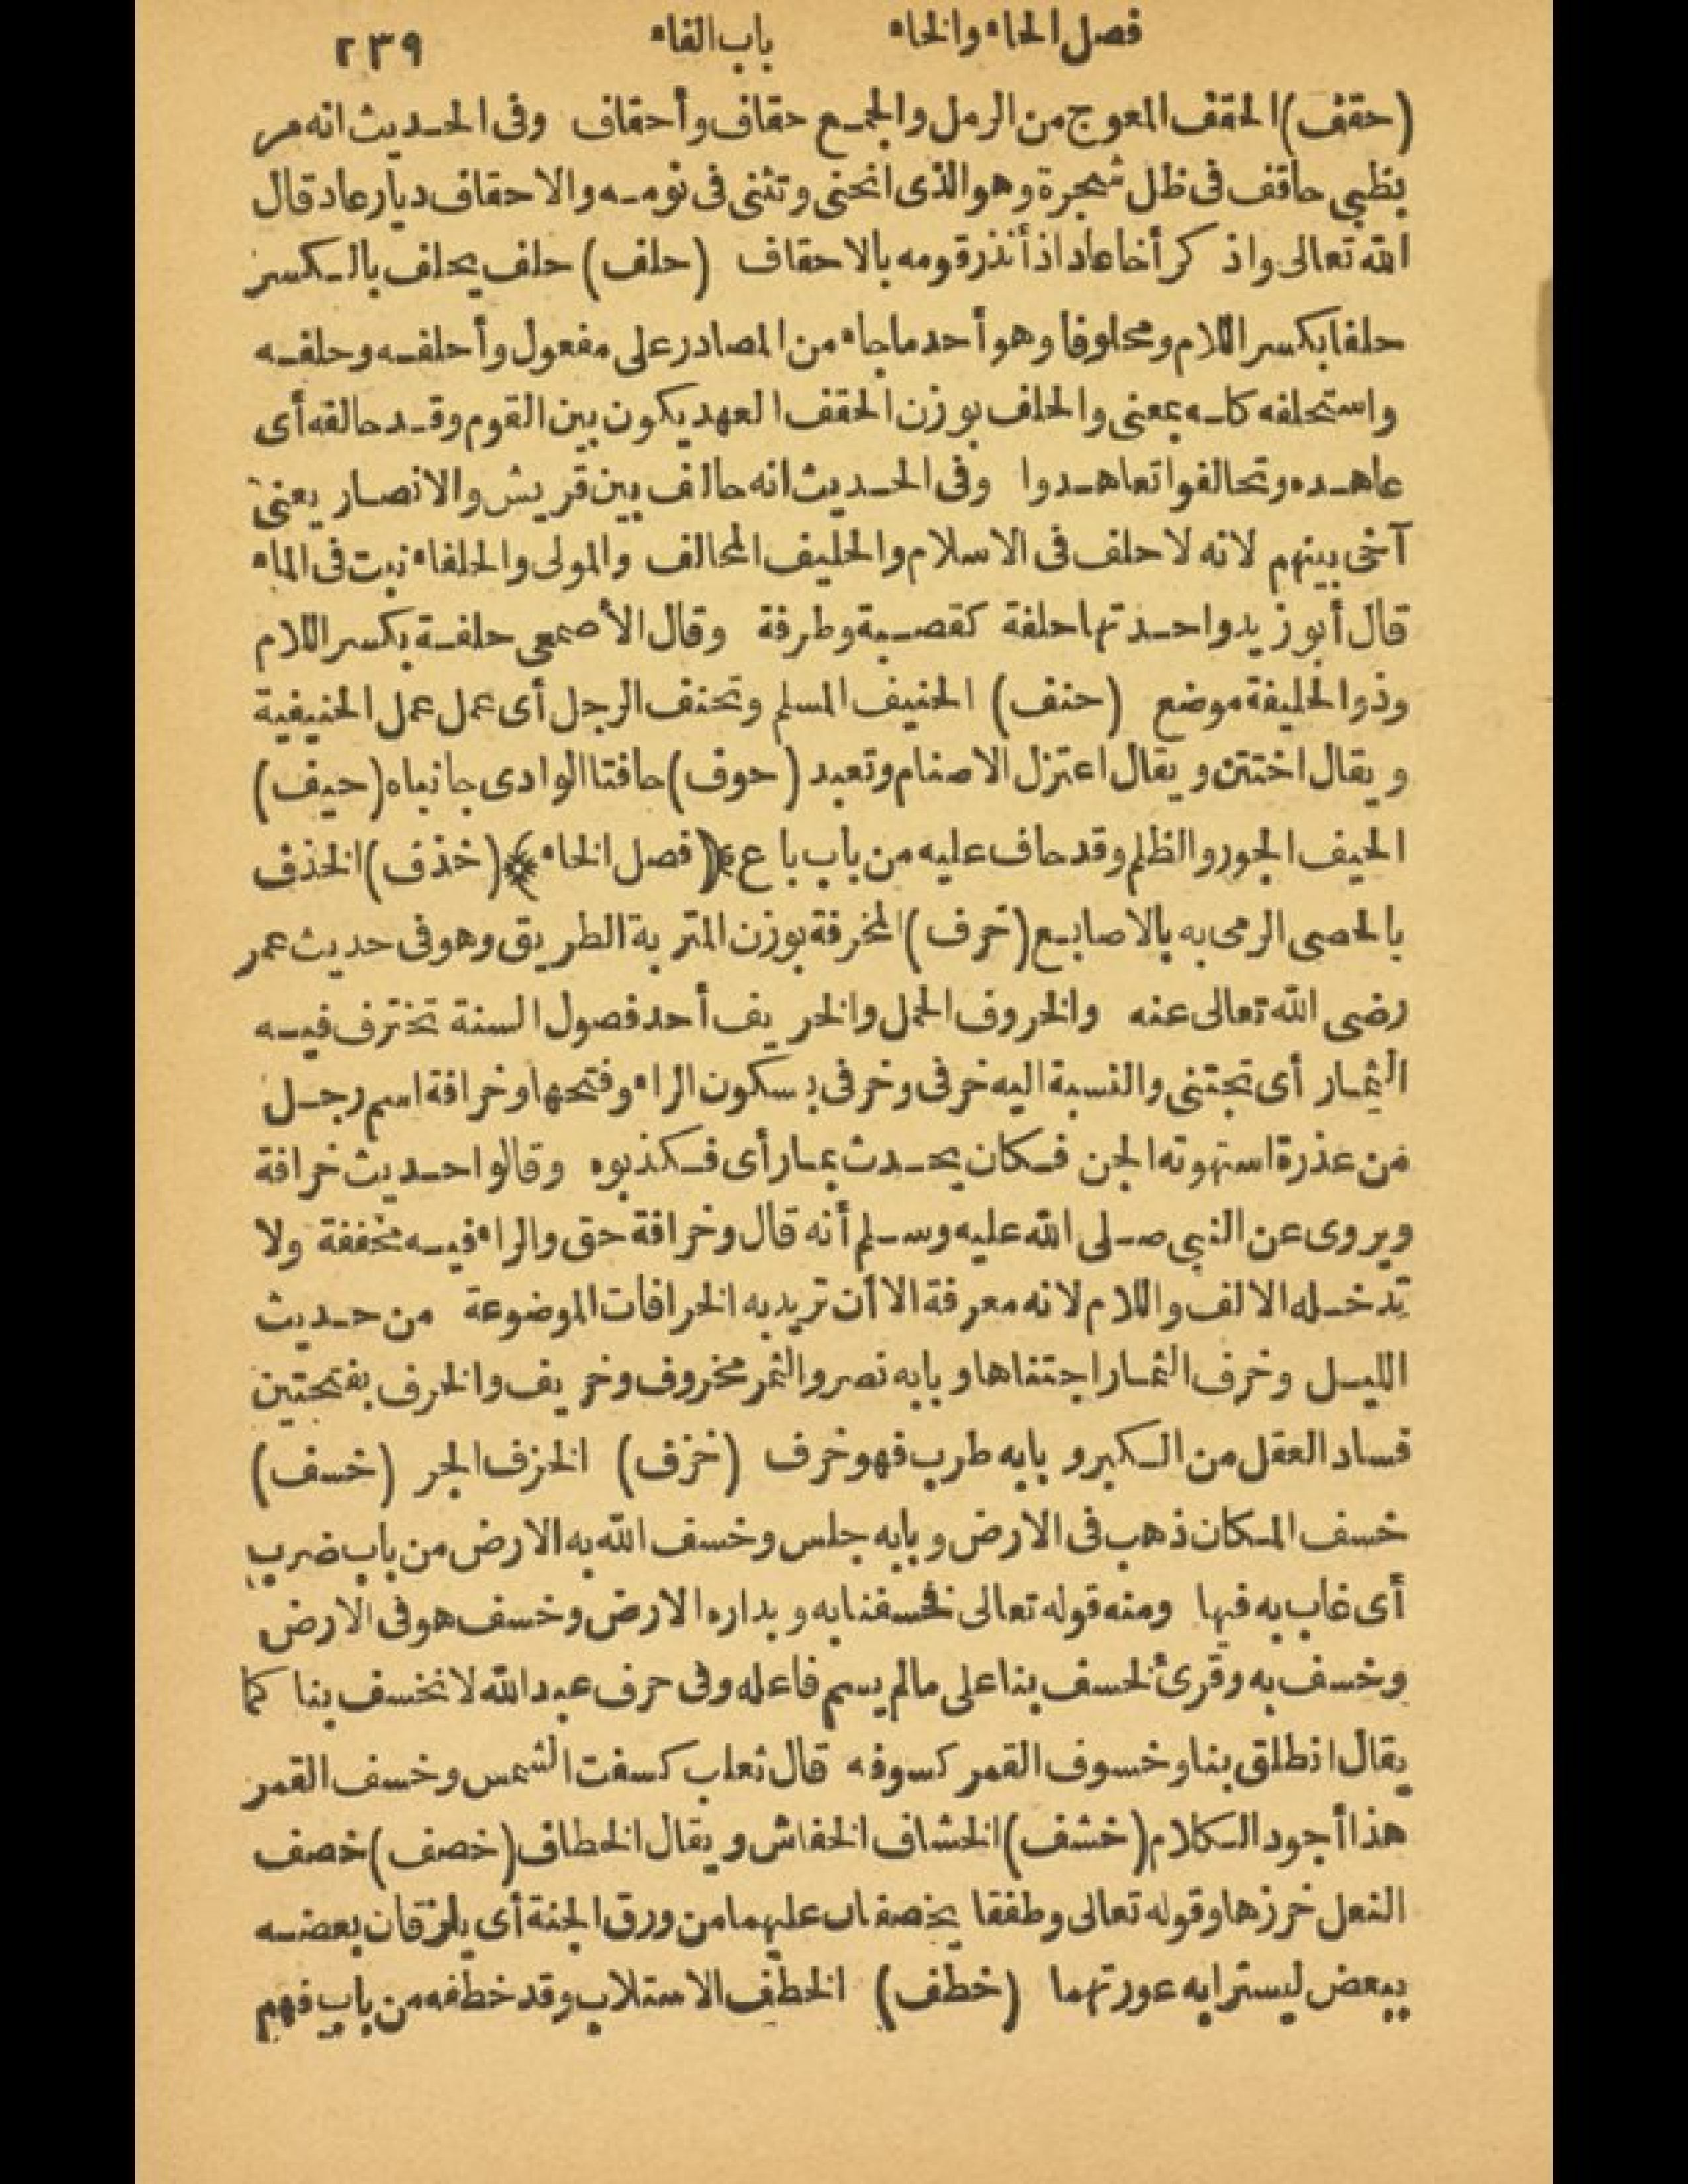 فصل الحاء والخاء باب الفاء ٢٣٩
(حقف) الحقف المعوج من الرمل والجمع حقاف وأحقاف وفى الحديث انه مر
بظبي حاقف فى ظل شجرة وهو الذى انحنى وتثنى فى نومه والاحقاف ديار عاد قال
الله تعالى واذ كر أخا عاد اذ أنذر قومه بالاحقاف (حلف) حلف يحلف بالكسر
حلفا بكسر اللام ومحلوفا وهو أحد ما جاء من المصادر على مفعول وأحلفه وحلفه
واستحلفه كله بمعنى والحلف بوزن الحقف العهد يكون بين القوم وقد حالفه أى
عاهده وتحالفوا تعاهدوا وفى الحديث انه حالف بين قريش والانصار يعنى
آخى بينهم لانه لا حلف فى الاسلام والحليف المحالف والمولى والحلفاء نبت فى الماء
قال أبو زيد واحدتها حلفة كقصبة وطرفة وقال الأصمعى حلفة بكسر اللام
وذو الحليفة موضع (حنف) الحنيف المسلم وتحنف الرجل أى عمل عمل الحنيفية
ويقال اختتن ويقال اعتزل الاصنام وتعبد (حوف) حافتا الوادى جانباه (حيف)
الحيف الجور والظلم وقد حاف عليه من باب باع ﴿فصل الخاء﴾ (خذف) الخذف
بالحصى الرمى به بالاصابع (خرف) المخرفة بوزن المتربة الطريق وهو فى حديث عمر
رضى الله تعالى عنه والخروف الحمل والخريف أحد فصول السنة تخترف فيه
الثمار أى تجتنى والنسبة اليه خرفى وخرفى بسكون الراء وفتحها وخرافة اسم رجل
من عذرة استهوته الجن فكان يحدث بما رأى فكذبوه وقالوا حديث خرافة
ويروى عن النبي صلى الله عليه وسلم أنه قال وخرافة حق والراء فيه مخففة ولا
تدخله الالف واللام لانه معرفة الا أن تريد به الخرافات الموضوعة من حديث
الليل وخرف الثمار اجتناها وبابه نصر والثمر مخروف وخريف والخرف بفتحتين
فساد العقل من الكبر وبابه طرب فهو خرف (خزف) الخزف الجر (خسف)
خسف المكان ذهب فى الارض وبابه جلس وخسف الله به الارض من باب ضرب
أى غاب به فيها ومنه قوله تعالى فخسفنا به وبداره الارض وخسف هو فى الارض
وخسف به وقرئ لخسف بنا على مالم يسم فاعله وفى حرف عبد الله لانخسف بنا كما
يقال انطلق بنا وخسوف القمر كسوفه قال ثعلب كسفت الشمس وخسف القمر
هذا أجود الكلام (خشف) الخشاف الخفاش ويقال الخطاف (خصف) خصف
النعل خرزها وقوله تعالى وطفقا يخصفان عليهما من ورق الجنة أى يلزقان بعضه
ببعض ليسترا به عورتهما (خطف) الخطف الاستلاب وقد خطفه من باب فهم